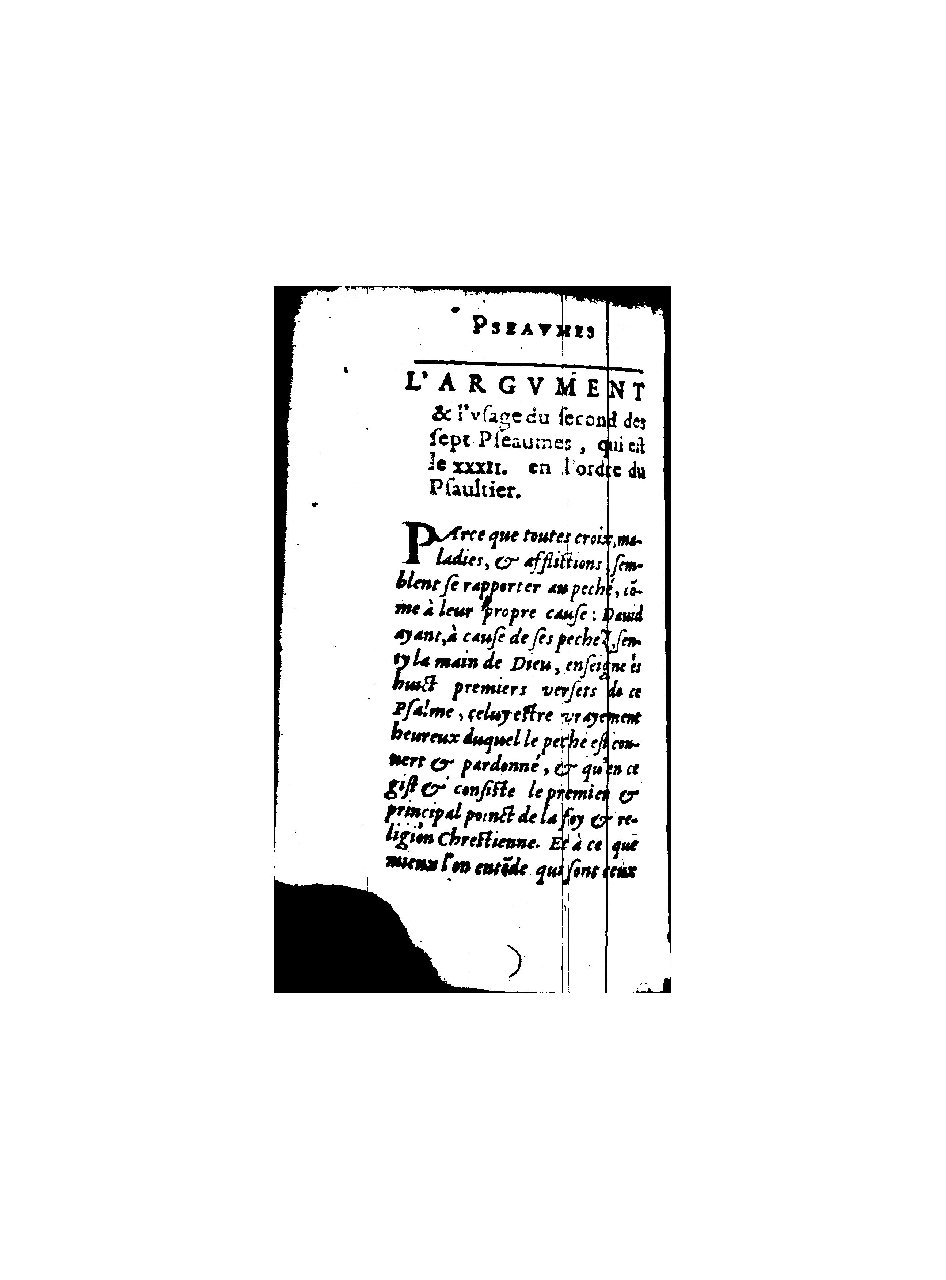 PSEAVMES
L'ARGVMENT
& l'vſage du ſecond des
ſept Pſeaumes, qui eſt
le XXXII. en l'ordre du
Pſaultier.
PArce que toutes croix, ma-
ladies, & afflictions, ſem-
blent ſe rapporter au peché, cõ-
me à leur propre cauſe: Dauid
ayant, à cauſe de ſes pechez, ſen-
ty la main de Dieu, enſeigne és
huict premiers verſets de ce
Pſalme, celuy eſtre vrayement
heureux duquel le peche eſt cou-
uert & pardonné, & qu'en ce
giſt & conſiſte le premier &
principal poinct de la foy & re-
ligion Chreſtienne. Et à ce que
mieux l'on entẽde qui ſont ceux